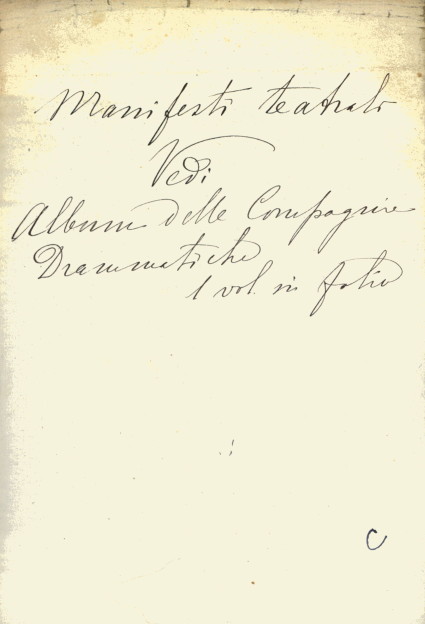 Manifesti teatrali
Vedi
Album delle Compagnie
Drammatiche
1 vol. in folio
C